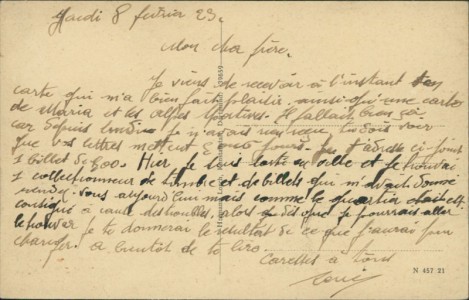 Mardi 8 février 23.
Mon cher frère.
Je viens de recevoir à l'instant ton
carte qui m'a bien fait plaisir ainsi qu'une carte
de Maria et les Alpes Il fallait bien ça
car depuis lundi je n'avais rien reçu tu dois voir
que vos lettres mettent jours. Je t' ci-joint
1 billet de 600. Hier, je suis en ville et je trouvai
1 collectionneur de timbre et de billets qui m'avait donné
rendez-vous aujourd'hui mais comme le quartier était
consigné à cause des troubles, alors dès que je pourrais aller
le trouver je te donnerai le résultat de ce que j'aurai pu
changer. A bientôt de te lire.
Caresses à tous
N 457 21